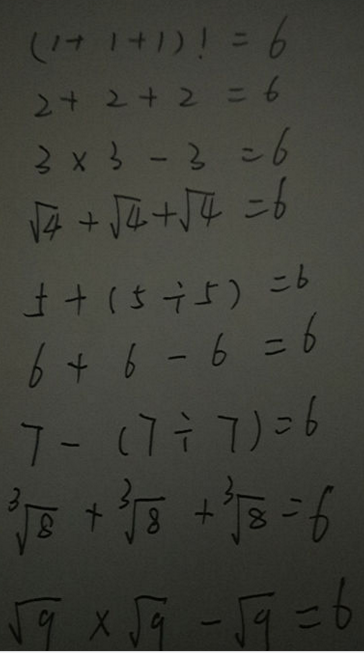 (1+1+1)! = 6
2 + 2 + 2 = 6
3 × 3 - 3 = 6
√4 + √4 + √4 = 6
5 + (5 ÷ 5) = 6
6 + 6 - 6 = 6
7 - (7 ÷ 7) = 6
∛8 + ∛8 + ∛8 = 6
√9 × √9 - √9 = 6